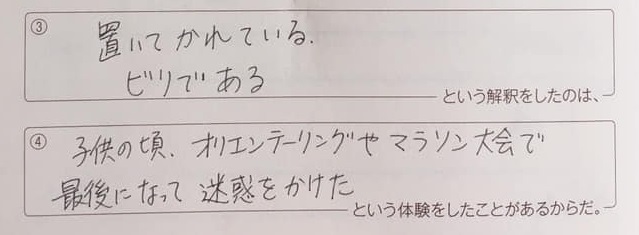 ③ 置いてかれている.
ビリである
という解釈をしたのは、
④ 子供の頃、オリエンテーリングや マラソン大会で
最後になって 迷惑をかけた
という体験をしたことがあるからだ。